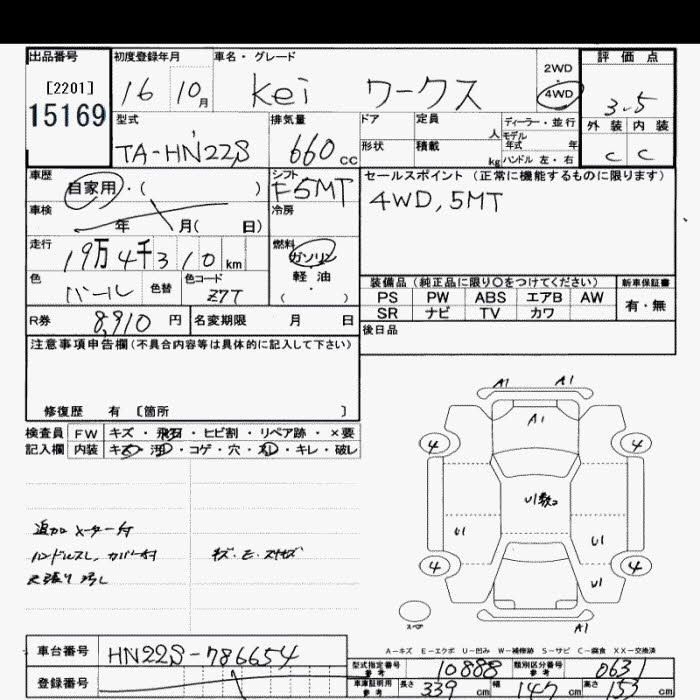 出品番号 初度登録年月 車名・グレード 2WD 評価点
[2201] 16 10月 Kei ワークス 4WD 3.5
15169 型式 排気量 ドア 定員 人 ディーラー・並行 外装 内装
TA-HN22S 660 cc 形状 積載 kg モデル年式 年 ハンドル 左・右 C C
車歴 自家用・( ) シフト F5MT セールスポイント(正常に機能するものに限ります)
車検 年 月( 日) 冷房 4WD, 5MT
走行 19万4千310km 燃料 ガソリン
軽・油
( )
色 パール 色替 色コード Z7T 装備品(純正品に限り〇をつけてください) 新車保証書
PS PW ABS エアB AW 有・無
R券 8,910円 名変期限 月 日 SR ナビ TV カワ
注意事項申告欄(不具合内容等は具体的に記入して下さい) 後日品
修復歴 有 〔箇所 〕
検査員 FW キズ・飛石・ヒビ割・リペア跡・×要
記入欄 内装 キズ・汚・コゲ・穴・スレ・キレ・破レ
A1 A1
A1
4 4
U1数コ
U1 U1
4 4
U1
スペア A1
追加メーター付
ハンドルスレ、カバー付 キズ・E・スリキズ
天張り汚レ
A-キズ E-エクボ U-凹み W-補修跡 S-サビ C-腐食 XX-交換済
車台番号 HN22S-786654
登録番号
型式指定番号 参考 10888 類別区分番号 参考 0631
車庫証明用 参考 長さ 339cm 幅 147cm 高さ 153cm